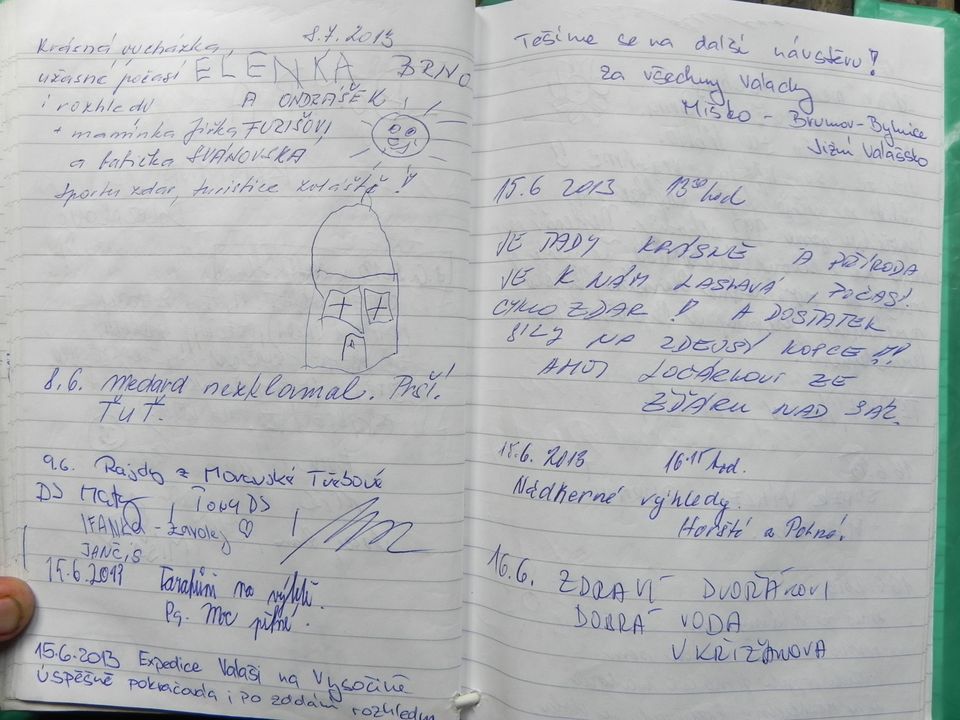 8.7.2013
Krásná vycházka,
úžasné počasí ELENKA BRNO
i rozhledu A ONDRÁŠEK
+ maminka Jiřka FUZIŠOVI
a babička SVÁNOVSKÁ
Sportu zdar, turistice zvláště!
8.6. Medard nezklamal. Prší.
Ťuť.
9.6. Rajdy z Moravské Třebové
DS Maty, Tony DS
IFANKA - zavolej ♡
JANČIS
15.6.2013 na výletě.
Moc pěkné.
15.6.2013 Expedice Valaši na Vysočině
úspěšně pokračovala i po zdolání rozhledny
Těšíme se na další návštěvu!
za všechny Valachy
Miško - Brumov-Bylnice
Jižní Valašsko
15.6 2013 13³⁰ hod
JE TADY KRÁSNĚ A PŘÍRODA
JE K NÁM LASKAVÁ, POČASÍ.
CYKLO ZDAR! A DOSTATEK
SÍLY NA ZDEJŠÍ KOPCE!!!
AHOJ LOČÁRKOVI ZE
ŽĎÁRU NAD SÁZ.
15.6. 2013 16.15 hod.
Nádherné výhledy.
a
16.6. ZDRAVÍ DVOŘÁKOVI
DOBRÁ VODA
U KŘIŽANOVA